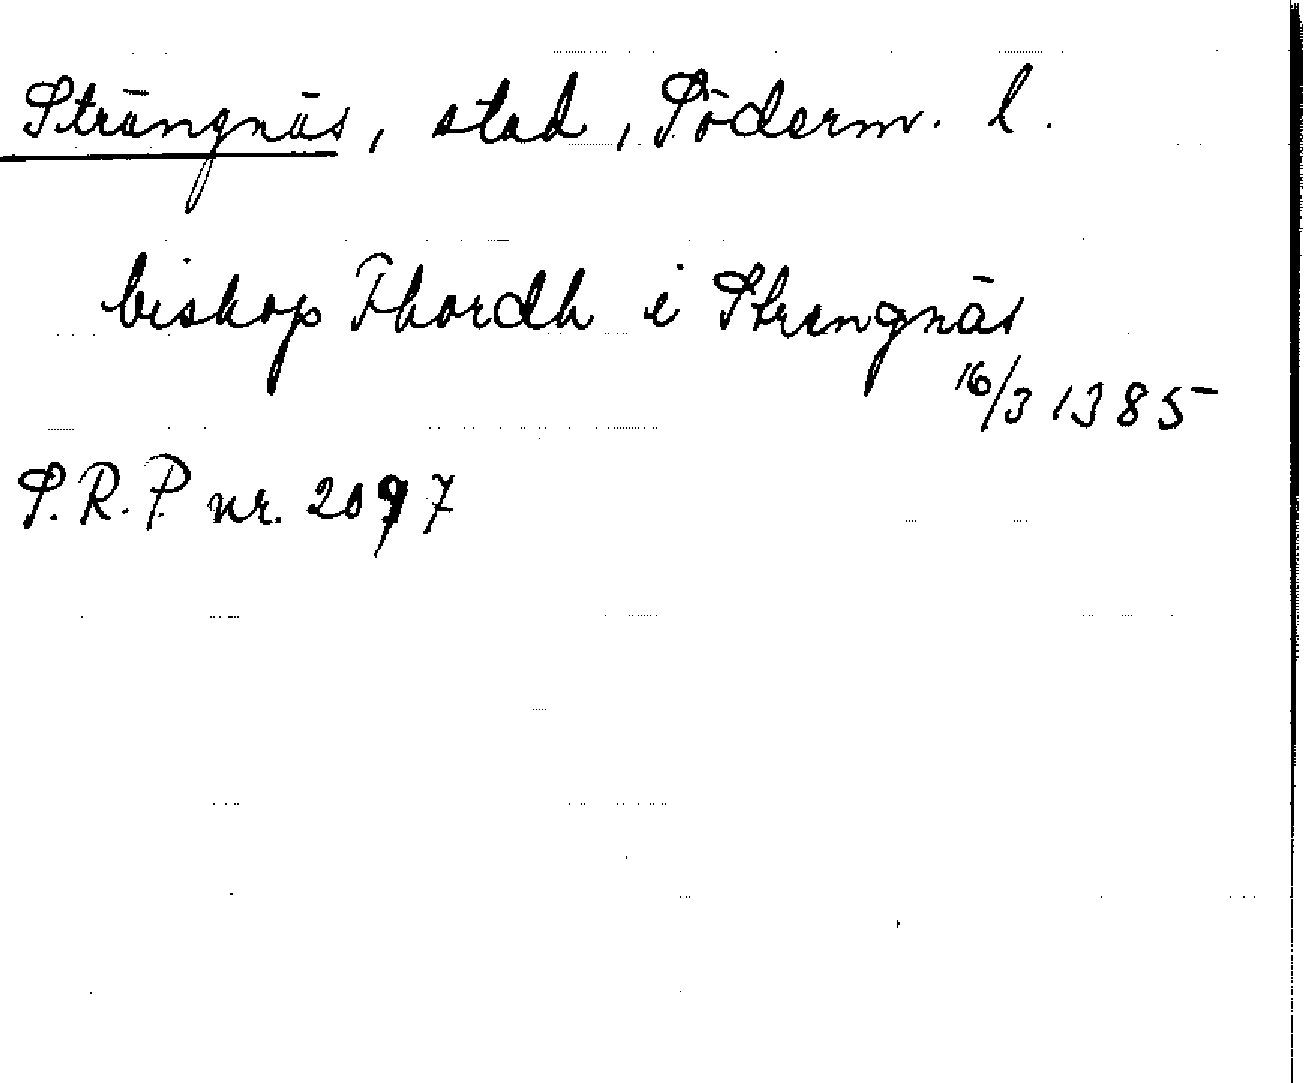 Strängnäs, stad, Söderm. l.
biskop Thordh i Strengnäs
16/3 1385
S.R.P. nr. 2097